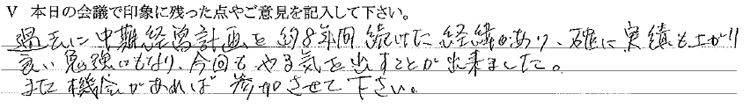 V 本日の会議で印象に残った点やご意見を記入して下さい。
過去に中期経営計画を約8年間続けた経緯があり、確に実績も上がり
良い勉強にもなり、今回もやる気を出すことが出来ました。
また機会があれば参加させて下さい。